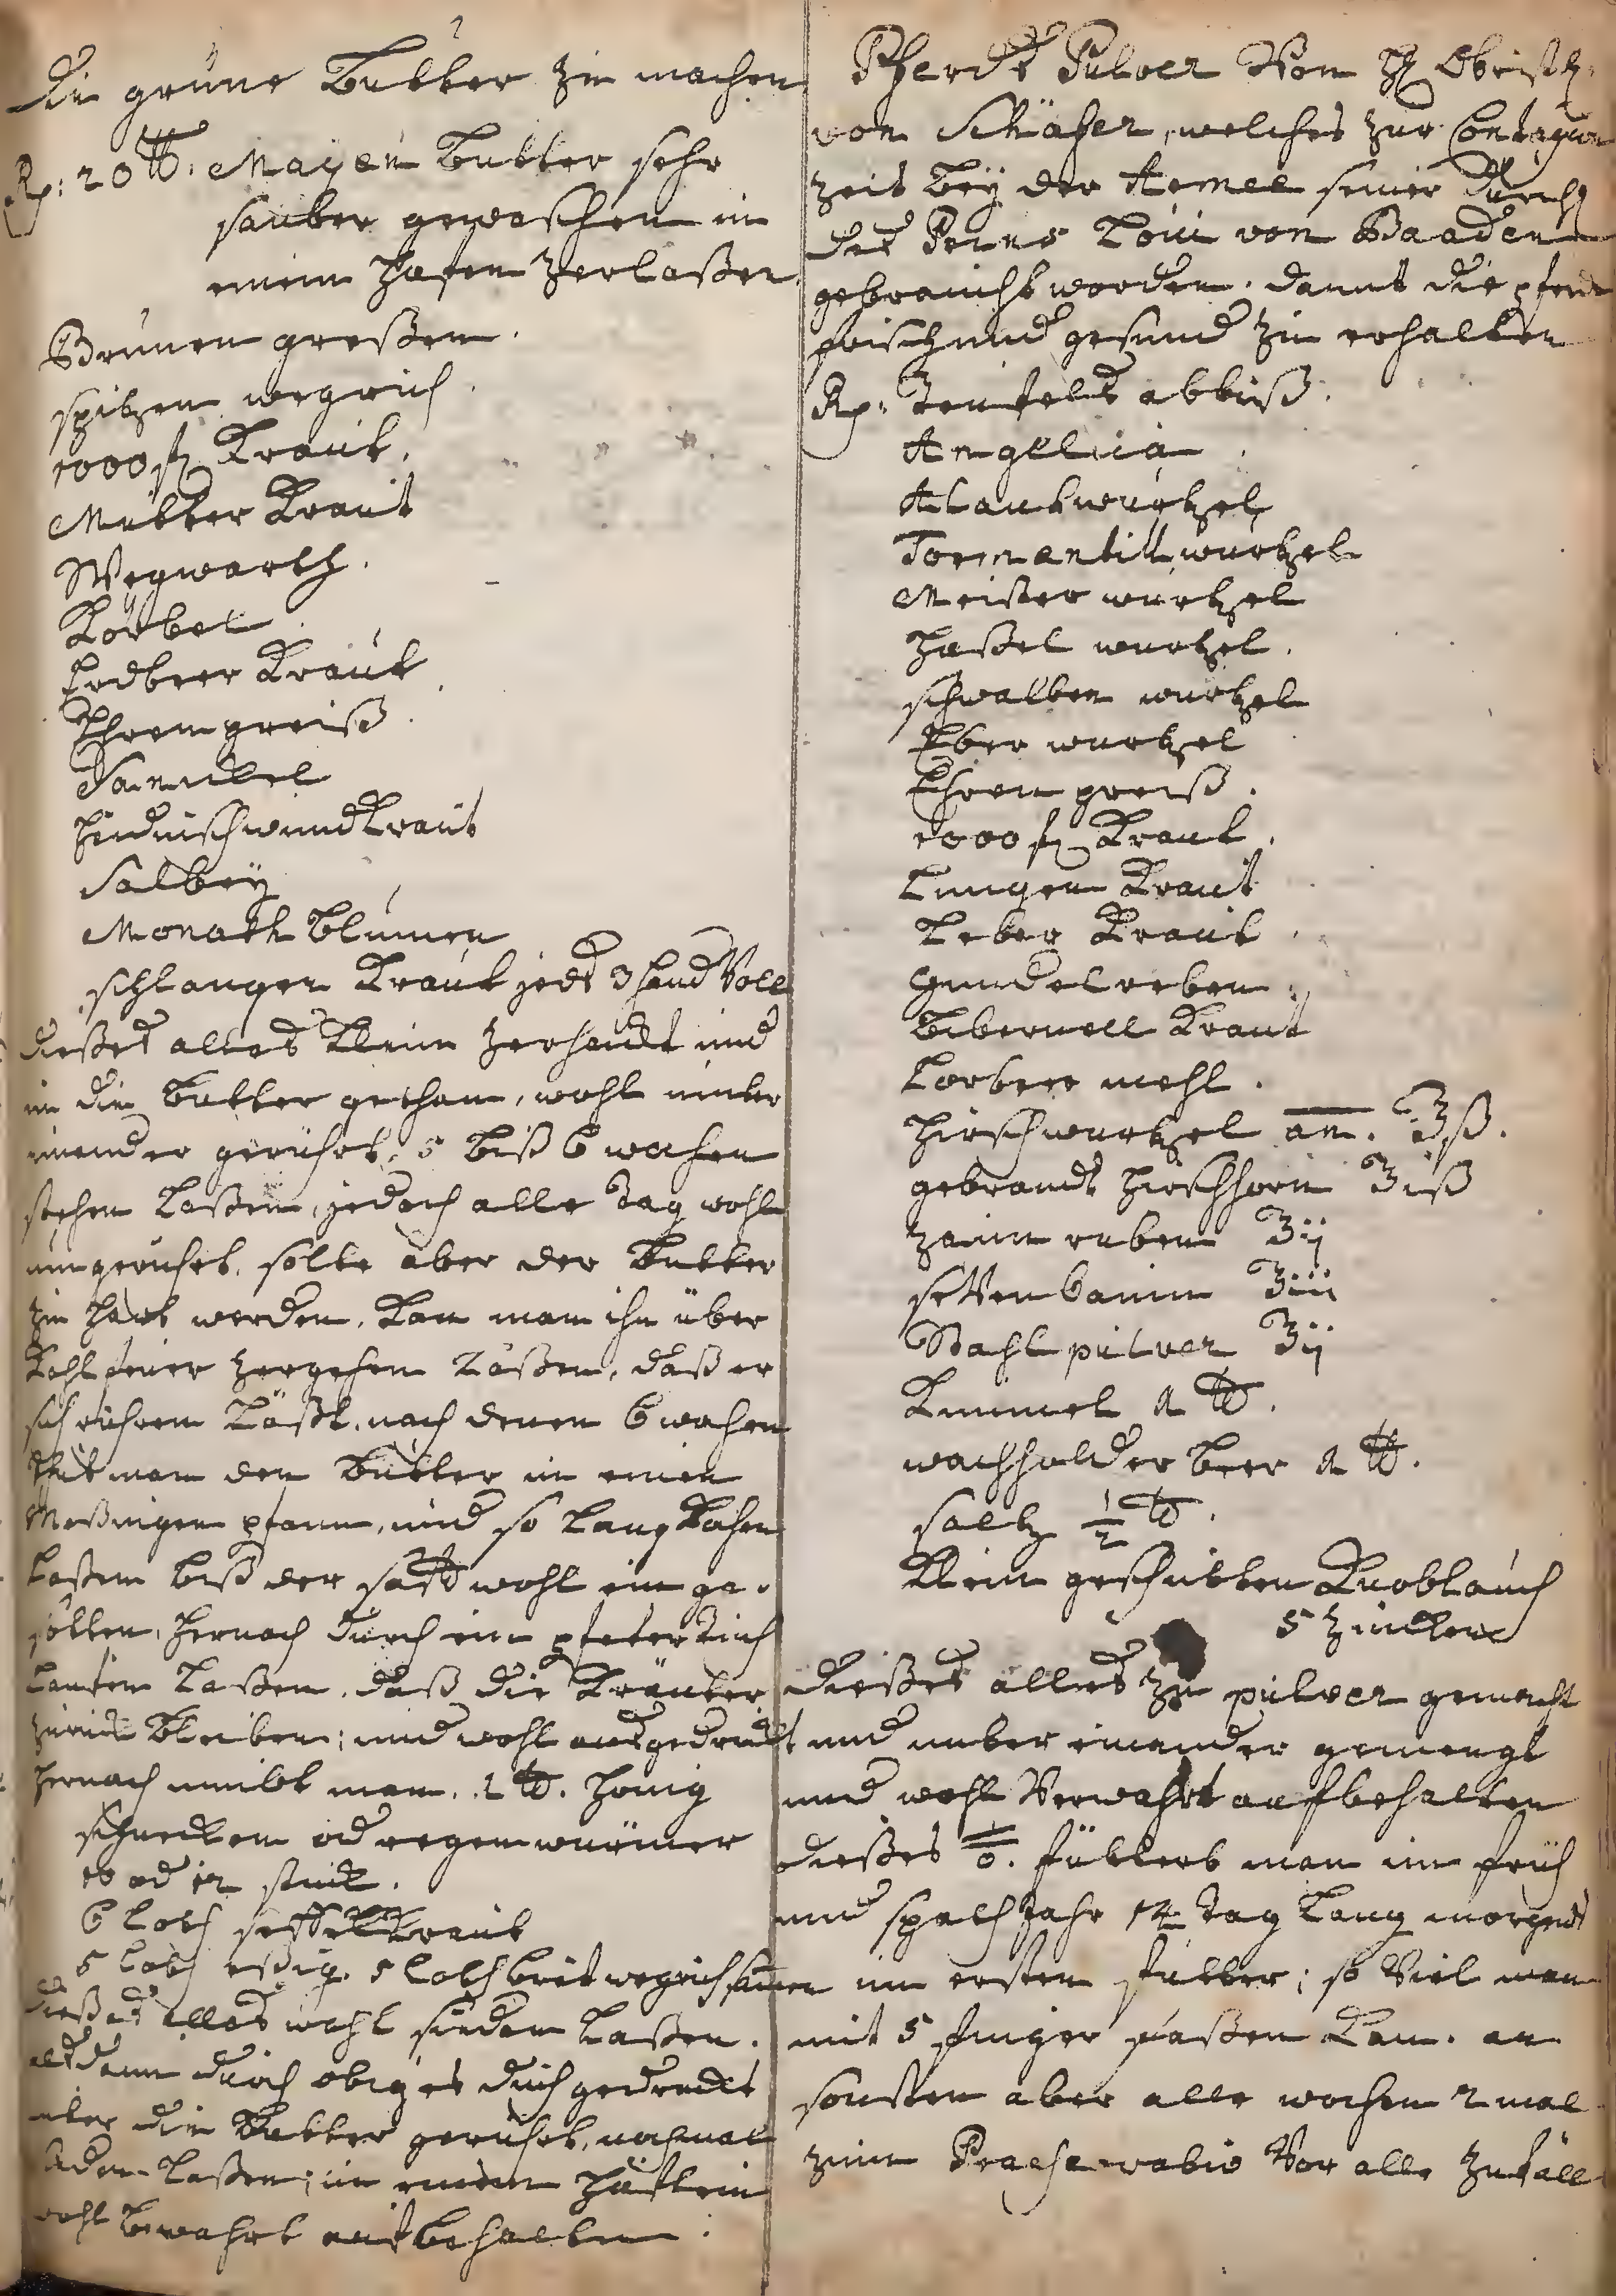 Die grüne Butter zu machen
Rp: 20 ℔. Mayen Butter sehr
sauber gewaschen in
einem Hafen zerlaßen
Brunen greßen.
spitzen wegrich.
1000 fl Kraut.
Mutter Kraut
Wegwarth.
Körbel.
Erdbeer Kraut.
Ehrenpreiß.
Sanickel
Heidnischwundkraut
Salbey
Monath Blumen
schlangen Kraut jedes 3 hand Voll
dießes alles klein zerhackt und
in die Butter gethan, wohl unter
einander gerührt, 5 biß 6 wochen
stehen laßen, jedoch alle Tag wohl
umgerührt. solte aber der Butter
zu hart werden, kan man ihn über
Kohlfeuer zergehen laßen, daß er
sich rühren läßt, nach denen 6 wochen
thut man den Butter in einen
Meßingen pfann, und so lang kochen
laßen biß der safft wohl ein ge-
sotten, hernach durch ein
lauffen laßen, daß die Kräuter
zurück bleiben; und wohl ausgedruckt
hernach nimbt man. 1 ℔. Honig
schnecken od regenwürmer
10 od 12 stuck.
6 loth Kraut
5 loth eßig. 5 loth breit wegrich samen
dießes alles wohl sieden laßen.
alsdann durch obiges duch gedruckt
unter die Butter gerührt, nochmal
sieden laßen; in einem Häfelein
wohl bewahrt auf behalten.
Pferdt Pulver Von H Obristl.
von Schäfer, welches zur Contagion
zeit bey der Armee seiner Durchl
des Prins Loui von Baaden
gebraucht worden. damit die pferdt
frisch und gesund zu erhalten
Rp. Teufels abbiß.
Angelica.
Alantwurtzel
Tormentill wurtzel
Meister wurtzel
Haßel wurtzel.
schwalben wurtzel
Eber wurtzel
Ehren preiß.
1000 fl Kraut.
Lungen Kraut
Leber Kraut.
Gundelreben.
Bibernell Kraut
Lorbeer mehl.
Hirschwurtzel an. ℥ß.
gebrandt Hirschhorn ℥iß
zaun ruben ℥ij
seVenbaum ℥iii
Stahl pulver ℥ij
Kummel 1 ℔.
wachholder beer 1 ℔.
saltz 1/2 ℔.
klein geschnitten Knoblauch
5 zincken
dießes alles zu pulver gemacht
und unter einander gemengt
und wohl Verwahrt aufbehalten
dießes füttert man im früh
und spath Jahr 14 tag lang morgends
im ersten futter; so Viel man
mit 5 finger faßen kan. an
sonsten aber alle wochen 2 mal
zum Praeservativ Vor alle zufäll